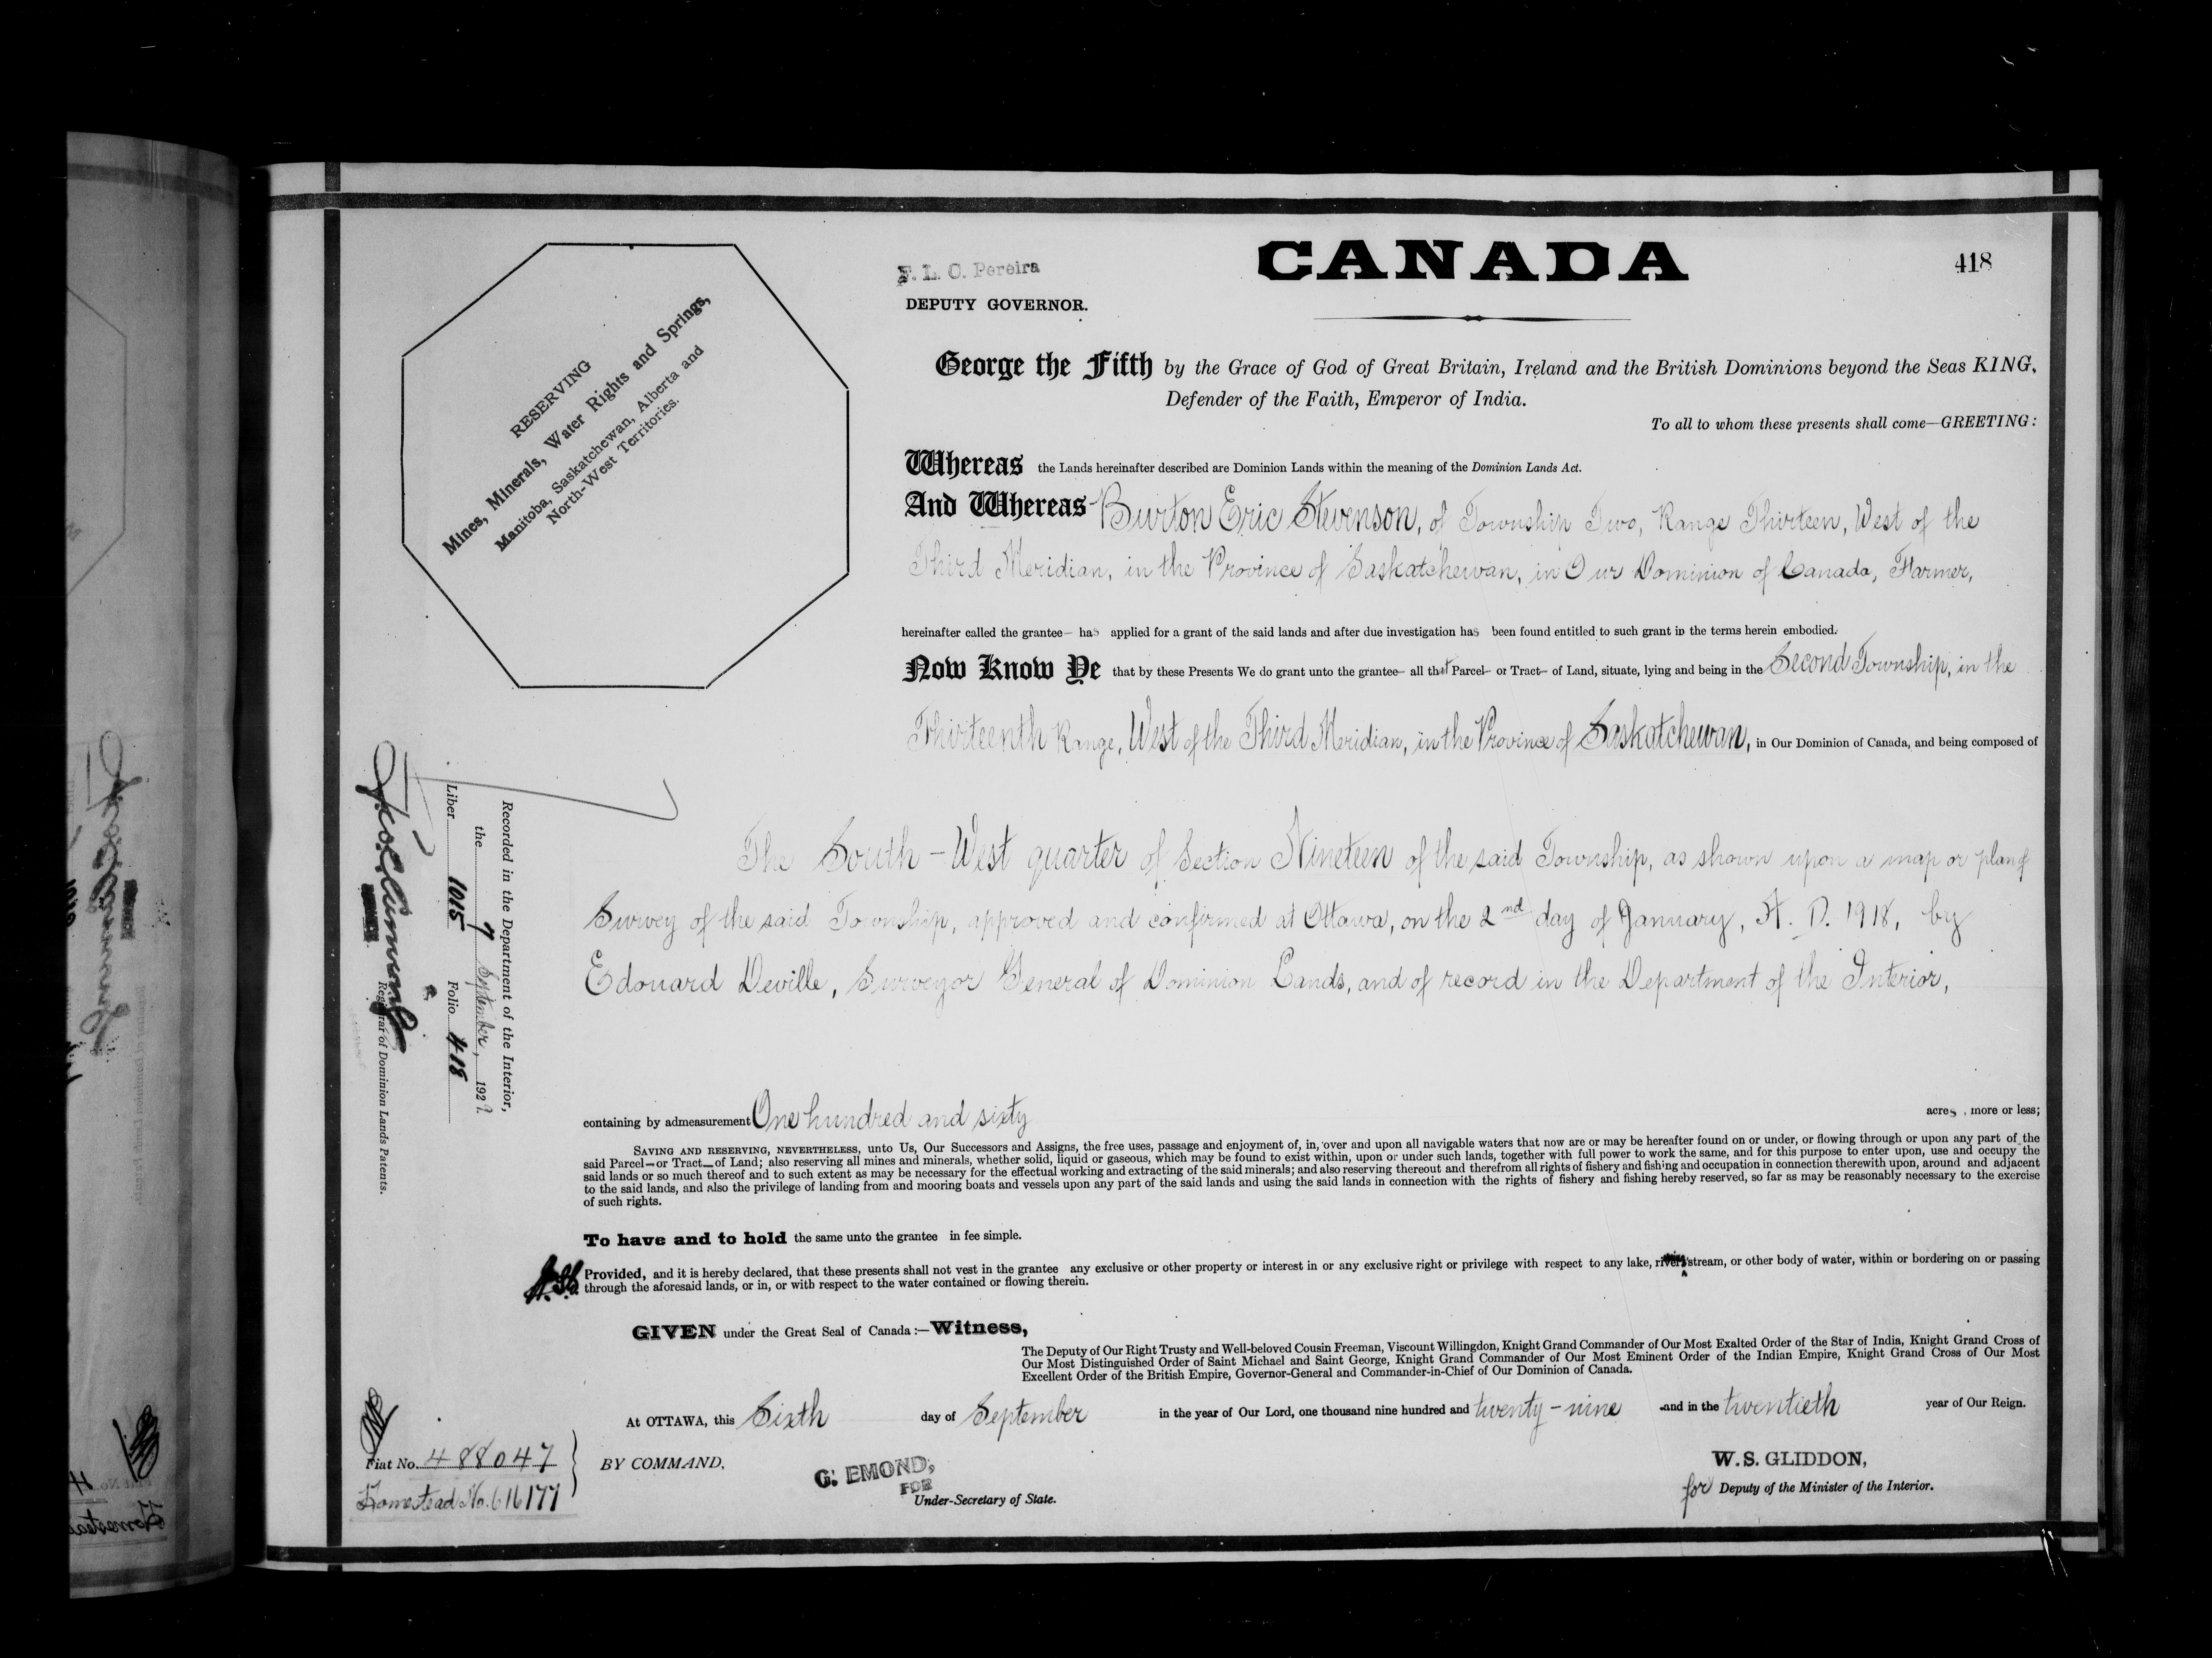 CANADA
418
F. L. C. Pereira
DEPUTY GOVERNOR.
RESERVING
Mines, Minerals, Water Rights and Springs,
Manitoba, Saskatchewan, Alberta and
North-West Territories.
George the Fifth by the Grace of God of Great Britain, Ireland and the British Dominions beyond the Seas KING,
Defender of the Faith, Emperor of India.
To all to whom these presents shall come—GREETING:
Whereas the Lands hereinafter described are Dominion Lands within the meaning of the Dominion Lands Act.
And Whereas Burton Eric Stevenson, of Township Two, Range Thirteen, West of the
Third Meridian, in the Province of Saskatchewan, in Our Dominion of Canada, Farmer,
hereinafter called the grantee— has applied for a grant of the said lands and after due investigation has been found entitled to such grant in the terms herein embodied.
Now Know Ye that by these Presents We do grant unto the grantee— all that Parcel— or Tract— of Land, situate, lying and being in the Second Township, in the
Thirteenth Range, West of the Third Meridian, in the Province of Saskatchewan, in Our Dominion of Canada, and being composed of
The South-West quarter of Section Nineteen of the said Township, as shown upon a map or plan of
Survey of the said Township, approved and confirmed at Ottawa, on the 2nd day of January, A. D. 1918, by
Edouard Deville, Surveyor General of Dominion Lands, and of record in the Department of the Interior,
Recorded in the Department of the Interior,
the 7 September, 1929.
Liber 1015 Folio 418
Registrar of Dominion Lands Patents.
containing by admeasurement One hundred and sixty acres, more or less;
SAVING AND RESERVING, NEVERTHELESS, unto Us, Our Successors and Assigns, the free uses, passage and enjoyment of, in, over and upon all navigable waters that now are or may be hereafter found on or under, or flowing through or upon any part of the
said Parcel—or Tract—of Land; also reserving all mines and minerals, whether solid, liquid or gaseous, which may be found to exist within, upon or under such lands, together with full power to work the same, and for this purpose to enter upon, use and occupy the
said lands or so much thereof and to such extent as may be necessary for the effectual working and extracting of the said minerals; and also reserving thereout and therefrom all rights of fishery and fishing and occupation in connection therewith upon, around and adjacent
to the said lands, and also the privilege of landing from and mooring boats and vessels upon any part of the said lands and using the said lands in connection with the rights of fishery and fishing hereby reserved, so far as may be reasonably necessary to the exercise
of such rights.
To have and to hold the same unto the grantee in fee simple.
Provided, and it is hereby declared, that these presents shall not vest in the grantee any exclusive or other property or interest in or any exclusive right or privilege with respect to any lake, river, stream, or other body of water, within or bordering on or passing
through the aforesaid lands, or in, or with respect to the water contained or flowing therein.
GIVEN under the Great Seal of Canada:—Witness,
The Deputy of Our Right Trusty and Well-beloved Cousin Freeman, Viscount Willingdon, Knight Grand Commander of Our Most Exalted Order of the Star of India, Knight Grand Cross of
Our Most Distinguished Order of Saint Michael and Saint George, Knight Grand Commander of Our Most Eminent Order of the Indian Empire, Knight Grand Cross of Our Most
Excellent Order of the British Empire, Governor-General and Commander-in-Chief of Our Dominion of Canada.
At OTTAWA, this Sixth day of September in the year of Our Lord, one thousand nine hundred and twenty-nine and in the twentieth year of Our Reign.
Fiat No. 488047
Homestead No. 616177
BY COMMAND,
G. EMOND,
FOR
Under-Secretary of State.
W. S. GLIDDON,
for Deputy of the Minister of the Interior.